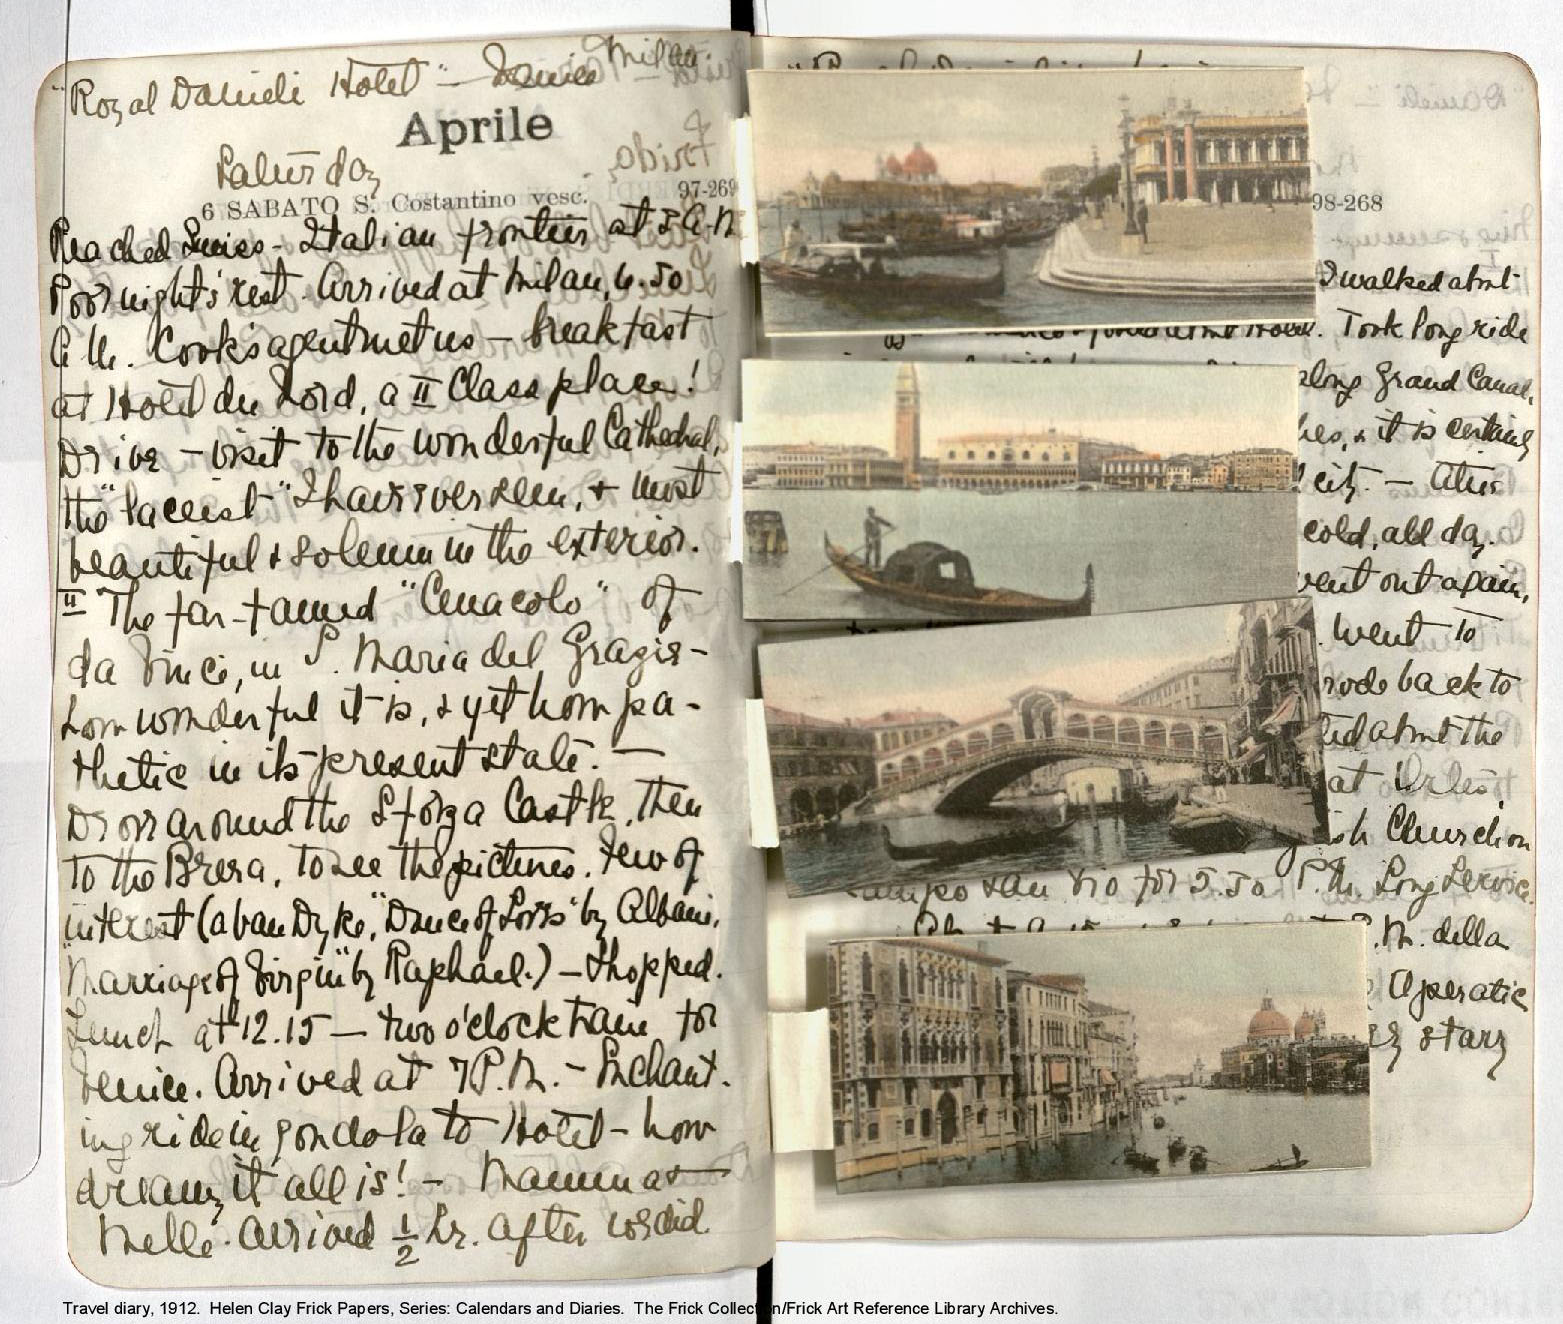 "Royal Danieli Hotel" - Venice Milan.
Aprile
Saturday
6 SABATO S. Costantino vesc. 97-269
Reached Swiss-Italian frontier at 2 A.M
Poor night's rest. Arrived at Milan, 6.50
A.M. Cook's agent met us - breakfast
at Hotel du Nord, a II Class place!
Drive - visit to the wonderful Cathedral,
the "laciest" I have ever seen, & most
beautiful & solemn in the exterior.
II The far-famed "Cenacolo" of
da Vinci, in S. Maria del Grazie -
how wonderful it is, & yet how pa-
thetic in its present state. -
Drove around the Sforza Castle, then
to the Brera, to see the pictures. Few of
interest (a van Dyke, "Dance of Loves" by Albani,
"Marriage of Virgin" by Raphael.) - Shopped.
Lunch at 12.15 - two o'clock train for
Venice. Arrived at 7 P.M. - Enchant-
ing ride in gondola to Hotel - how
dreamy it all is! - Mamma &
Melle. arrived 1/2 hr. after we did.
98-268
I walked about
Hotel. Took long ride
along Grand Canal,
& it is certainly
city. -
cold, all day.
went out again,
went to
rode back to
about the
at
Church on
Campo San Vio for 5.30 P.M. Long Service.
P.M. della
Operatic
starry
Travel diary, 1912. Helen Clay Frick Papers, Series: Calendars and Diaries. The Frick Collection/Frick Art Reference Library Archives.